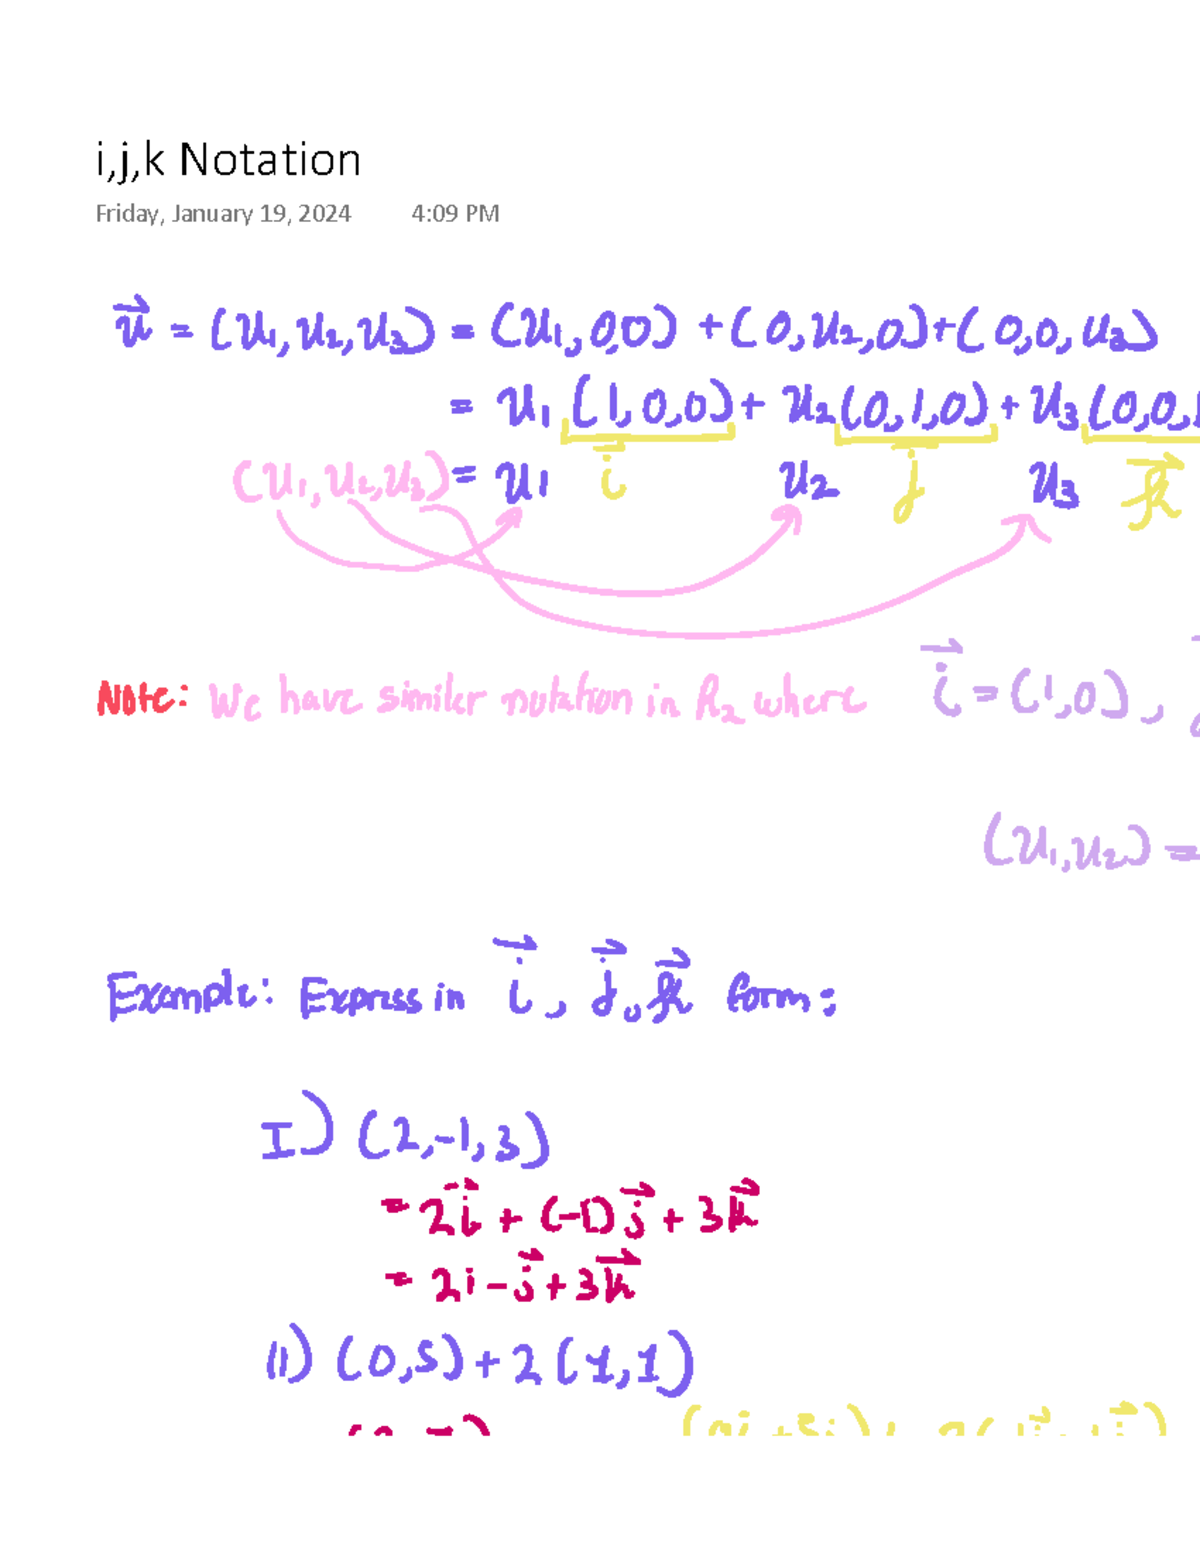 i,j,k Notation
Friday, January 19, 2024 4:09 PM
u⃗ = (u₁,u₂,u₃) = (u₁,0,0) + (0,u₂,0) + (0,0,u₃)
= u₁ (1,0,0) + u₂ (0,1,0) + u₃ (0,0,1
(u₁,u₂,u₃) = u₁ i⃗ u₂ j⃗ u₃ k⃗
Note: We have similer notation in R₂ where i⃗ = (1,0),
(u₁,u₂) =
Example: Express in i⃗, j⃗, k⃗ form:
I) (2,-1,3)
= 2i⃗ + (-1)j⃗ + 3k⃗
= 2i - j⃗ + 3k⃗
II) (0,5) + 2 (1,1)